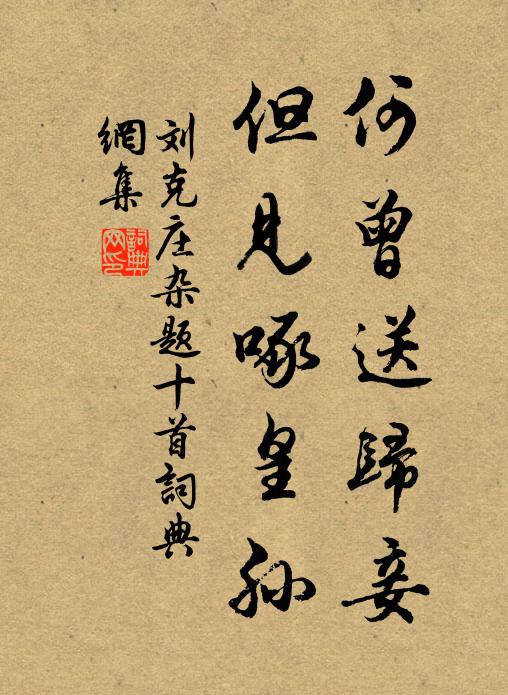 何曾送歸妾
但見啄皇孙
刘克庄杂题十首詞典
網集
詞典
网印